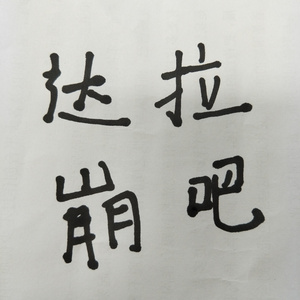 达拉
崩吧